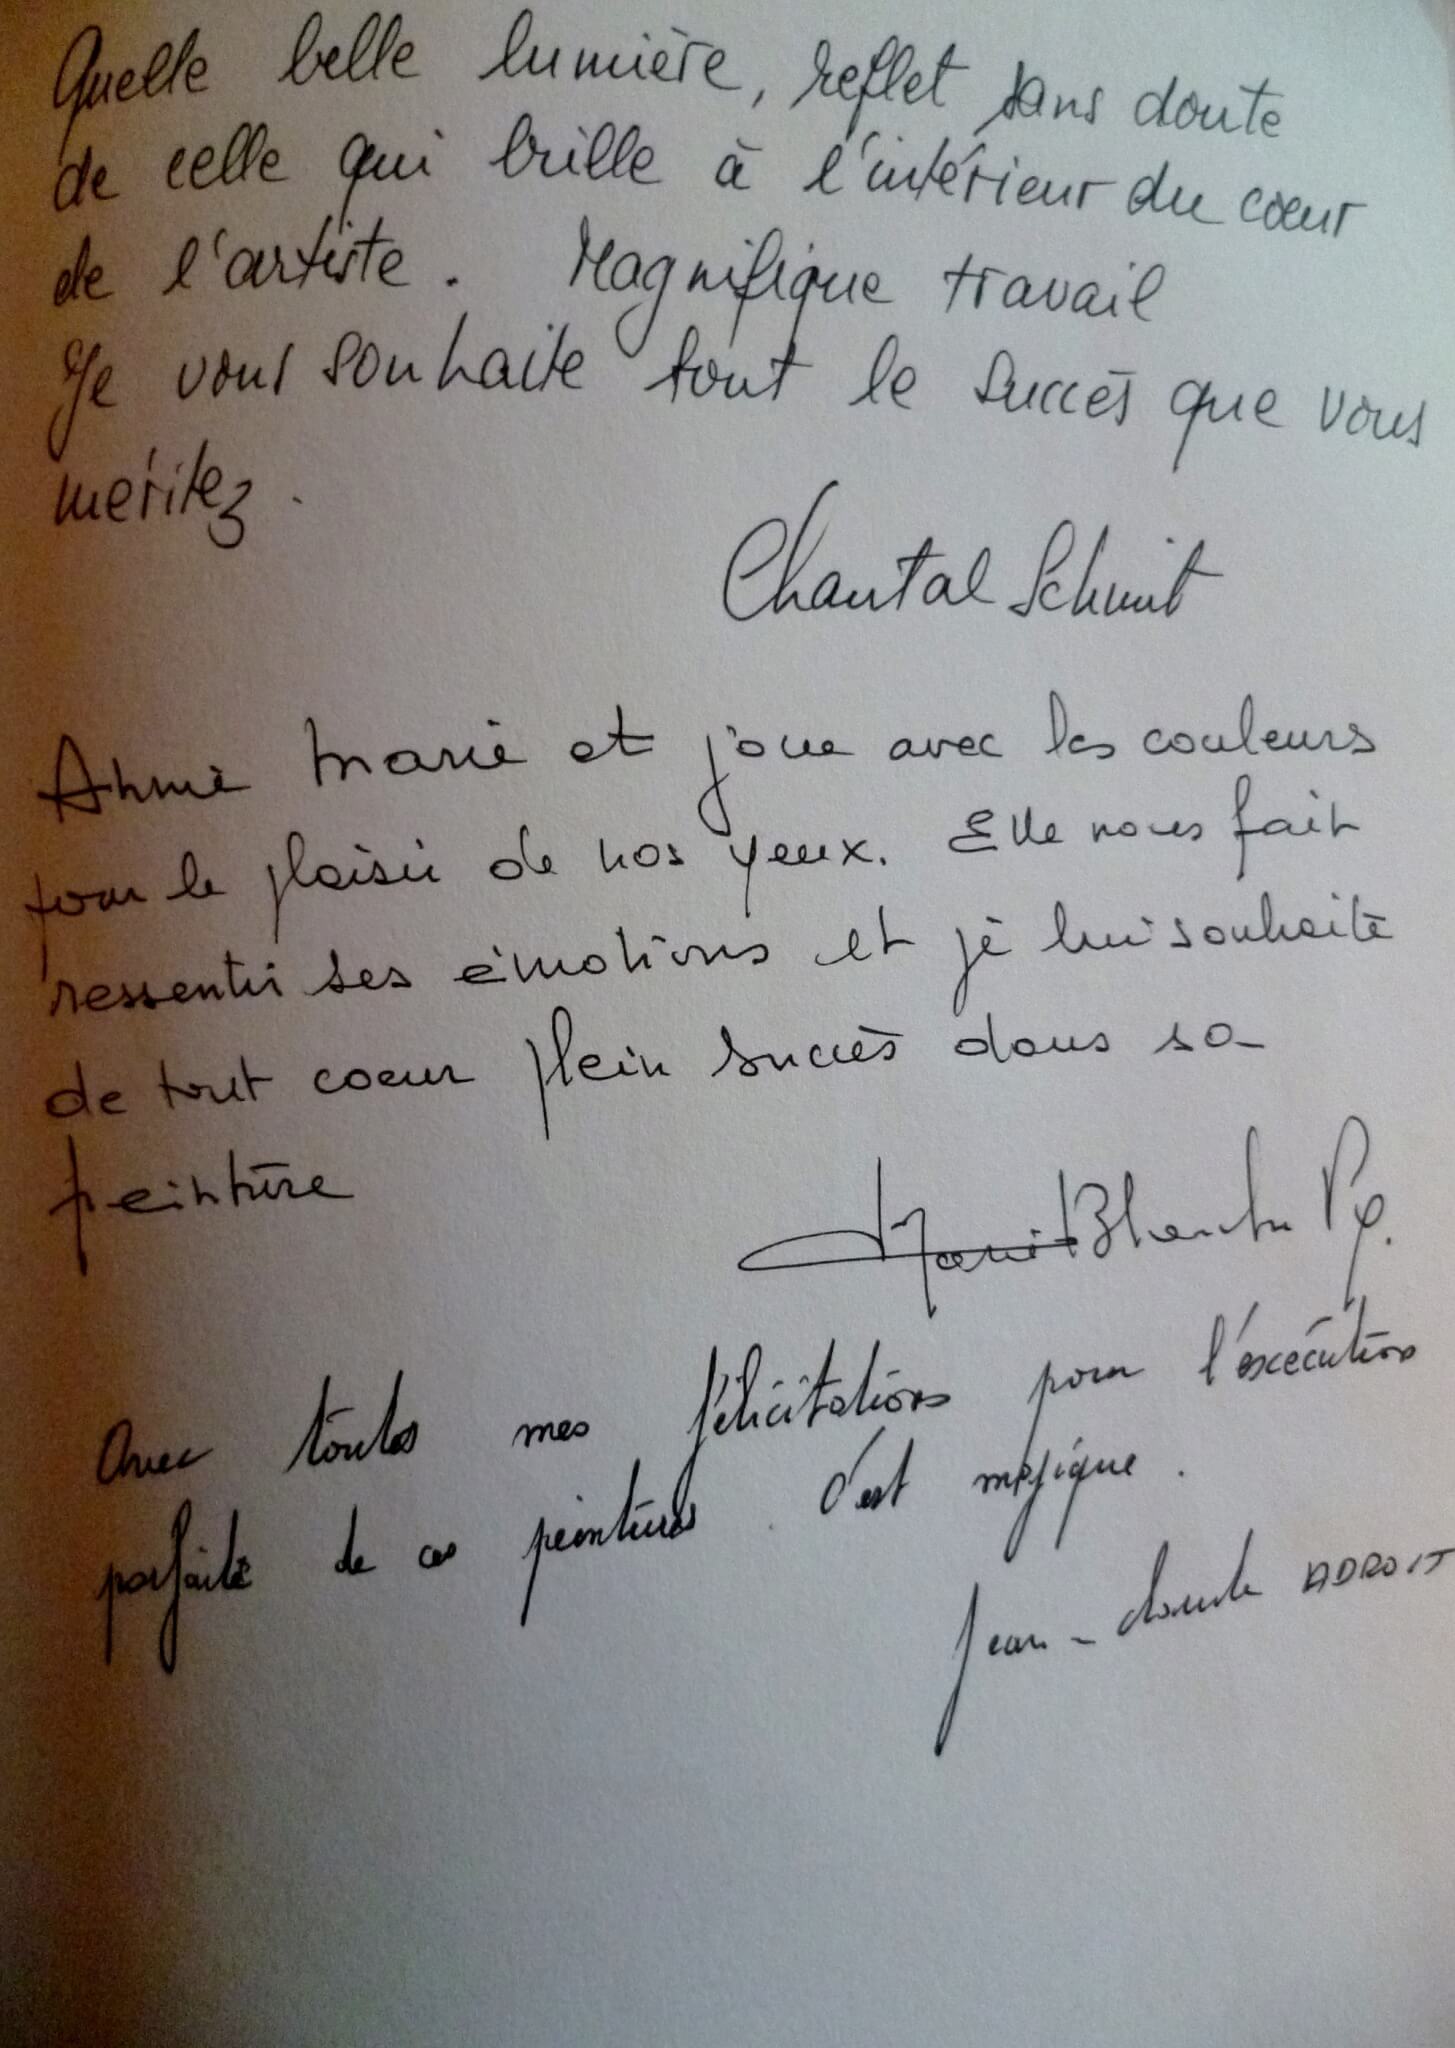 Quelle belle lumière, reflet sans doute
de celle qui brille à l'intérieur du cœur
de l'artiste. Magnifique travail
Je vous souhaite tout le succès que vous
méritez.
Chantal Schmit
marie et joue avec les couleurs
pour le plaisir de nos yeux. Elle nous fait
ressentir ses émotions et je lui souhaite
de tout coeur plein succès dans sa
peinture
Avec toutes mes félicitations pour l'exécution
parfaite de ces peintures. C'est magique.
Jean-Claude ADROIT